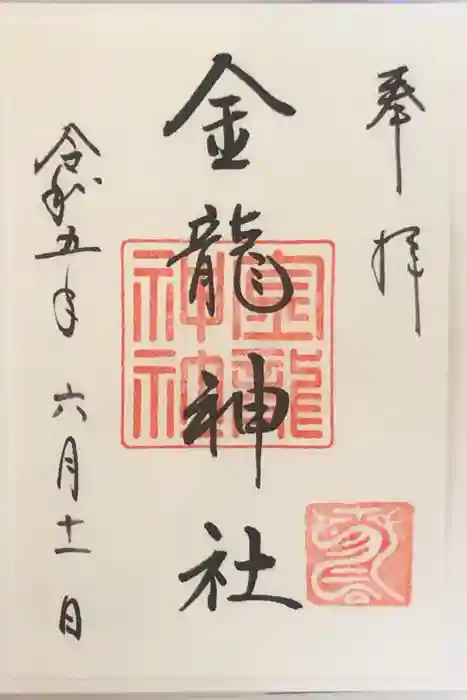 奉拝
金龍神社
金龍神社
令和五年六月十一日